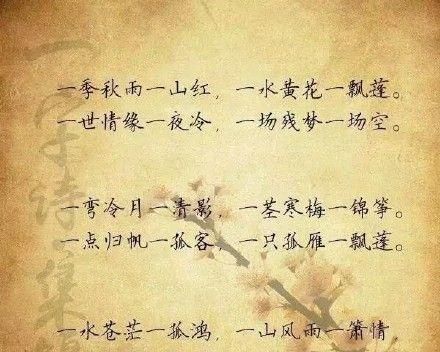 一字诗集
一季秋雨一山红，一水黄花一飘莲。
一世情缘一夜冷，一场残梦一场空。
一弯冷月一青影，一茎寒梅一锦筝。
一点归帆一孤客，一只孤雁一飘莲。
一水苍茫一孤鸿，一山风雨一箫情，